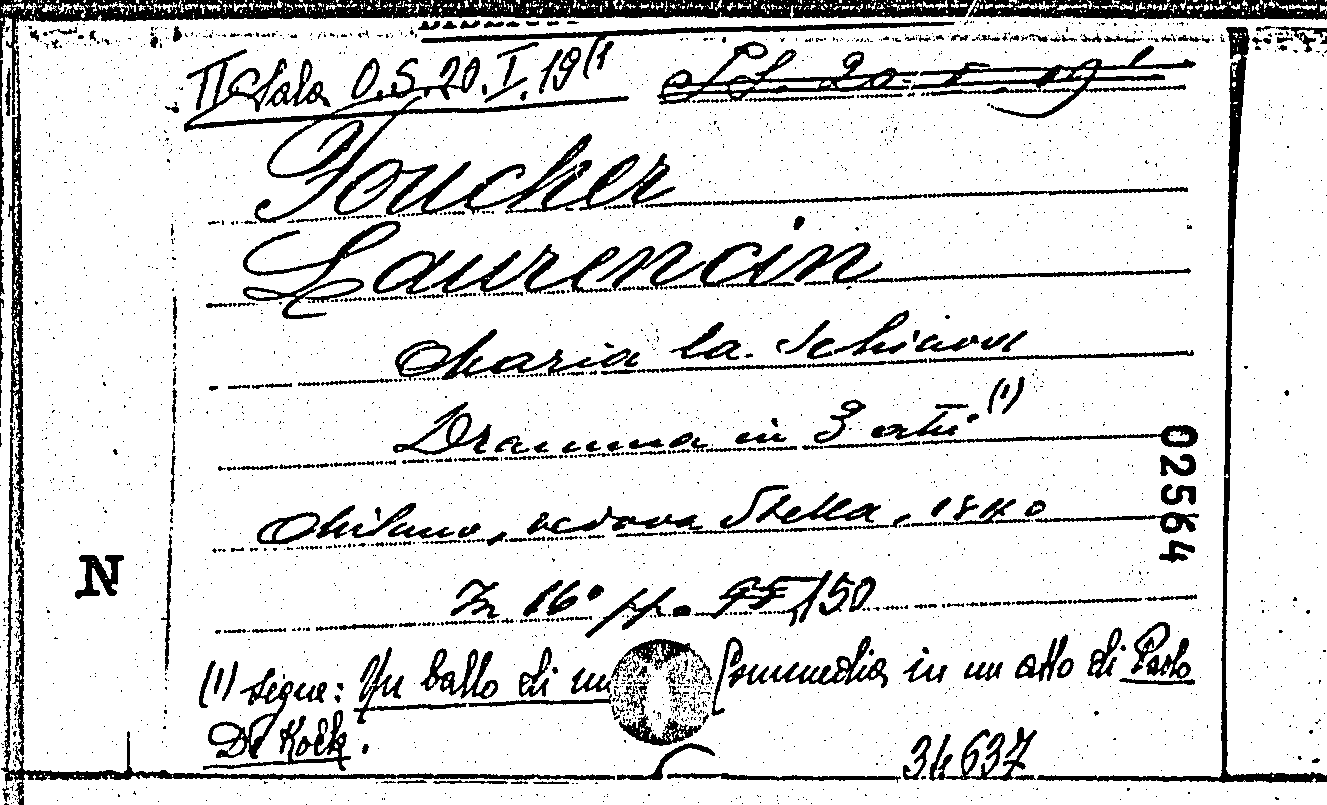 II Sala O.S.20.I.19(1
Foucher
Laurencin
Maria la Schiava
Dramma in 3 atti (1)
02564
Milano, vedova Stella, 1840
N
In 16° pp. 95,150
(1) segue: Un ballo di Commedia in un atto di Paolo
De Kock.
34637